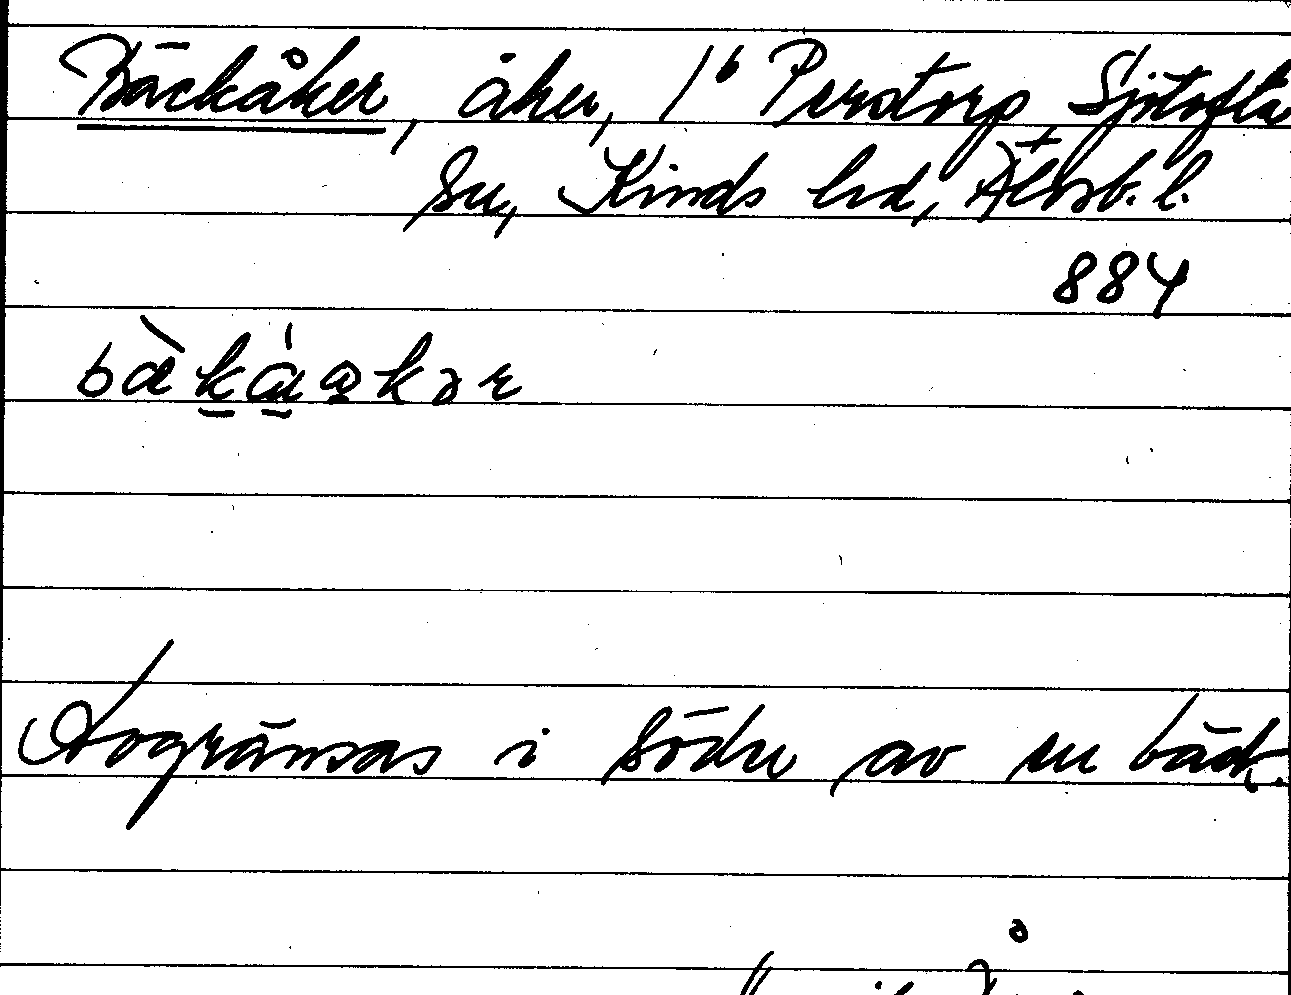 Bäckåker, åker, 1⁶ Perstorp, Sjötofta
sn, Kinds hd, Älvsb. l.
884
bæ̀ká̱kər
Avgränsas i söder av en bäck.